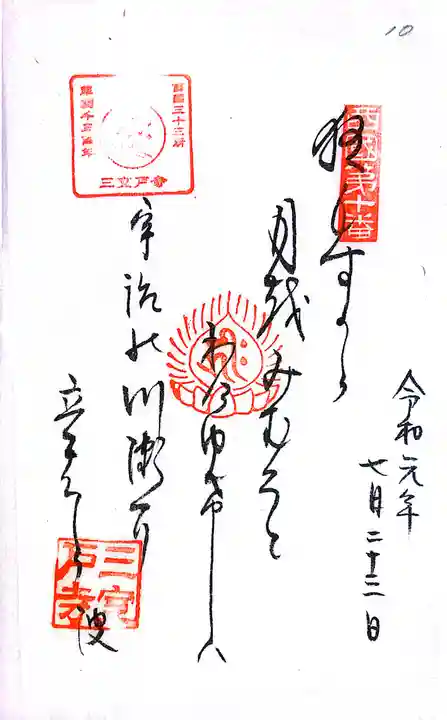 10
西國第十番
西國三十三所
草創千三百年
三室戸寺
令和元年
七月二十二日
夜もすから
月越みむろと
わけゆけハ
宇治能川瀬耳
立
しら波
三室戸寺